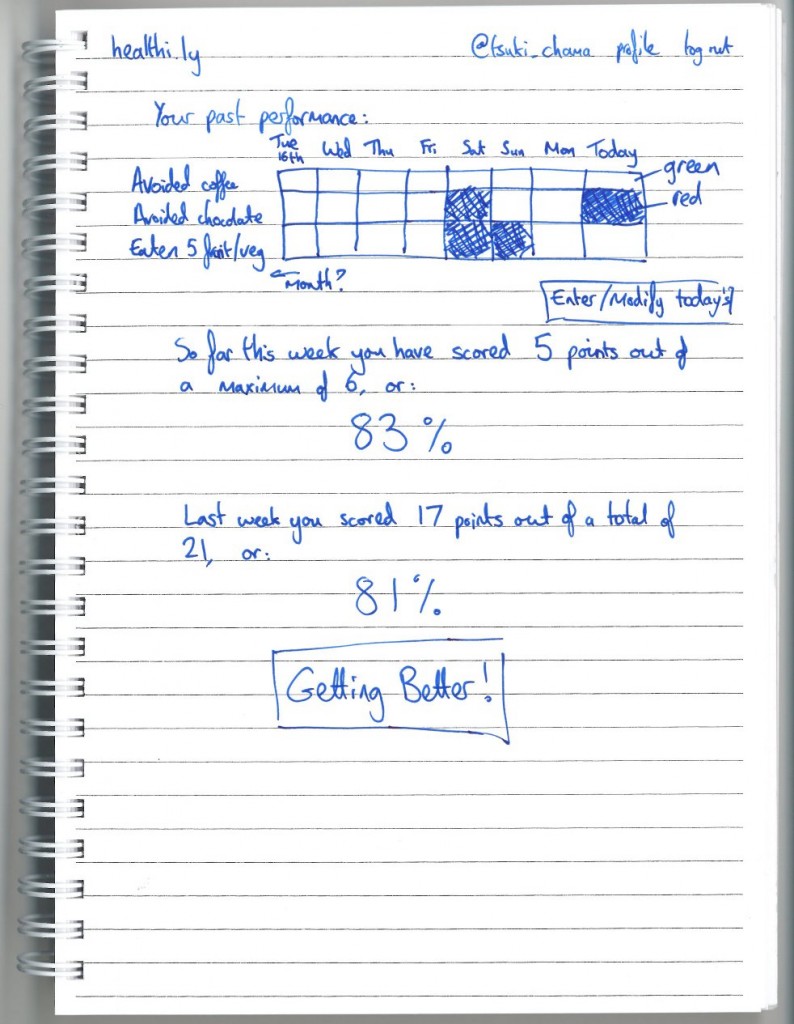 healthi.ly @tsuki_chama profile log out
Your past performance:
Tue 16th Wed Thu Fri Sat Sun Mon Today
Avoided coffee green
Avoided chocolate red
Eaten 5 fruit/veg
Month?
Enter/Modify today's?
So far this week you have scored 5 points out of
a maximum of 6, or:
83%
Last week you scored 17 points out of a total of
21, or:
81%
Getting Better!